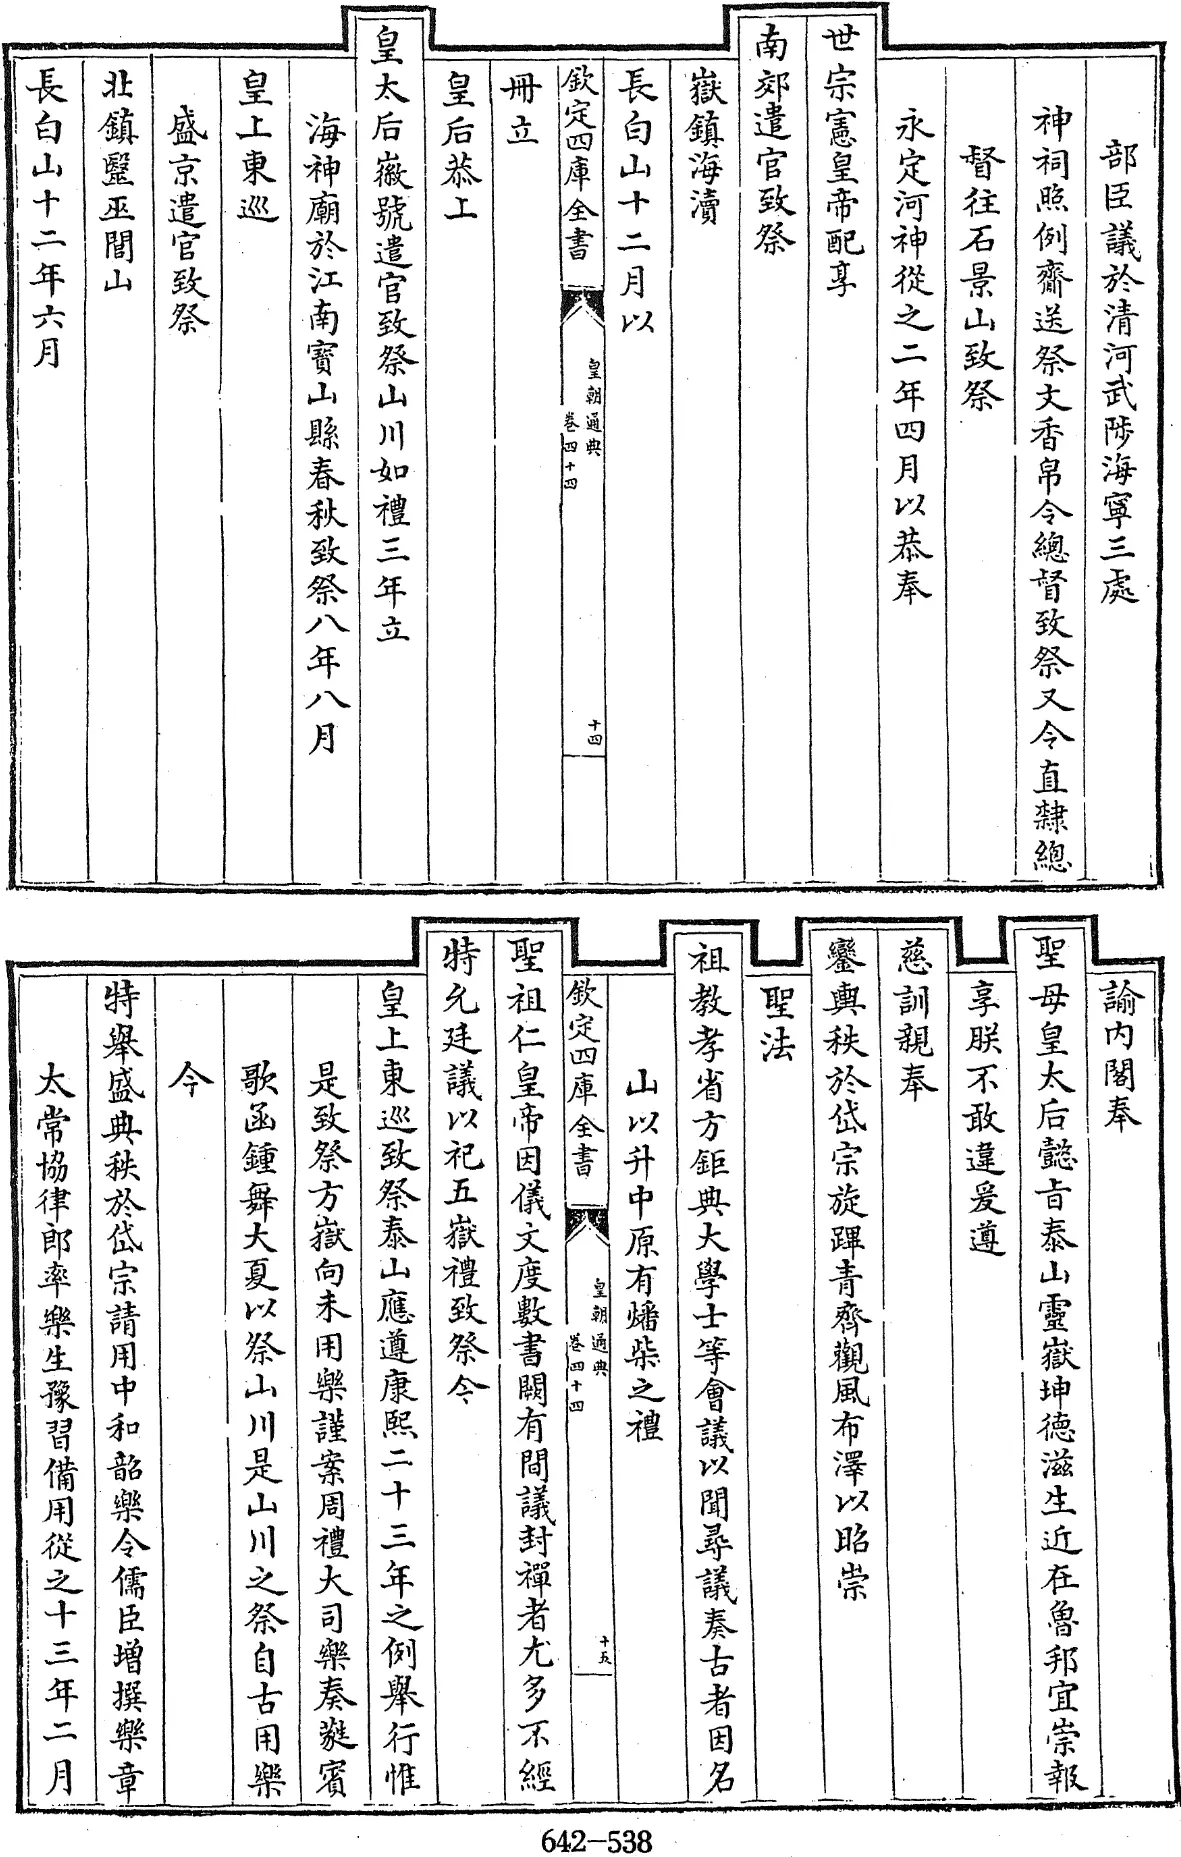 部臣議於清河武陟海寧三處
神祠照例齎送祭文香帛令總督致祭又令直隸總
督往石景山致祭
永定河神從之二年四月以恭奉
世宗憲皇帝配享
南郊遣官致祭
嶽鎮海瀆
長白山十二月以
欽定四庫全書
皇朝通典
卷四十四
十四
冊立
皇后恭上
皇太后徽號遣官致祭山川如禮三年立
海神廟於江南寶山縣春秋致祭八年八月
皇上東巡
盛京遣官致祭
北鎮毉巫閭山
長白山十二年六月
諭內閣奉
聖母皇太后懿旨泰山靈嶽坤德滋生近在魯邦宜崇報
享朕不敢違爰遵
慈訓親奉
鑾輿秩於岱宗旋蹕青齊觀風布澤以昭崇
聖法
祖教孝省方鉅典大學士等會議以聞尋議奏古者因名
山以升中原有燔柴之禮
欽定四庫全書
皇朝通典
卷四十四
十五
聖祖仁皇帝因儀文度數書闕有間議封禪者尤多不經
特允廷議以祀五嶽禮致祭今
皇上東巡致祭泰山應遵康熙二十三年之例舉行惟
是致祭方嶽向未用樂謹案周禮大司樂奏蕤賓
歌函鍾舞大夏以祭山川是山川之祭自古用樂
今
特舉盛典秩於岱宗請用中和韶樂令儒臣增撰樂章
太常協律郎率樂生豫習備用從之十三年二月
642-538